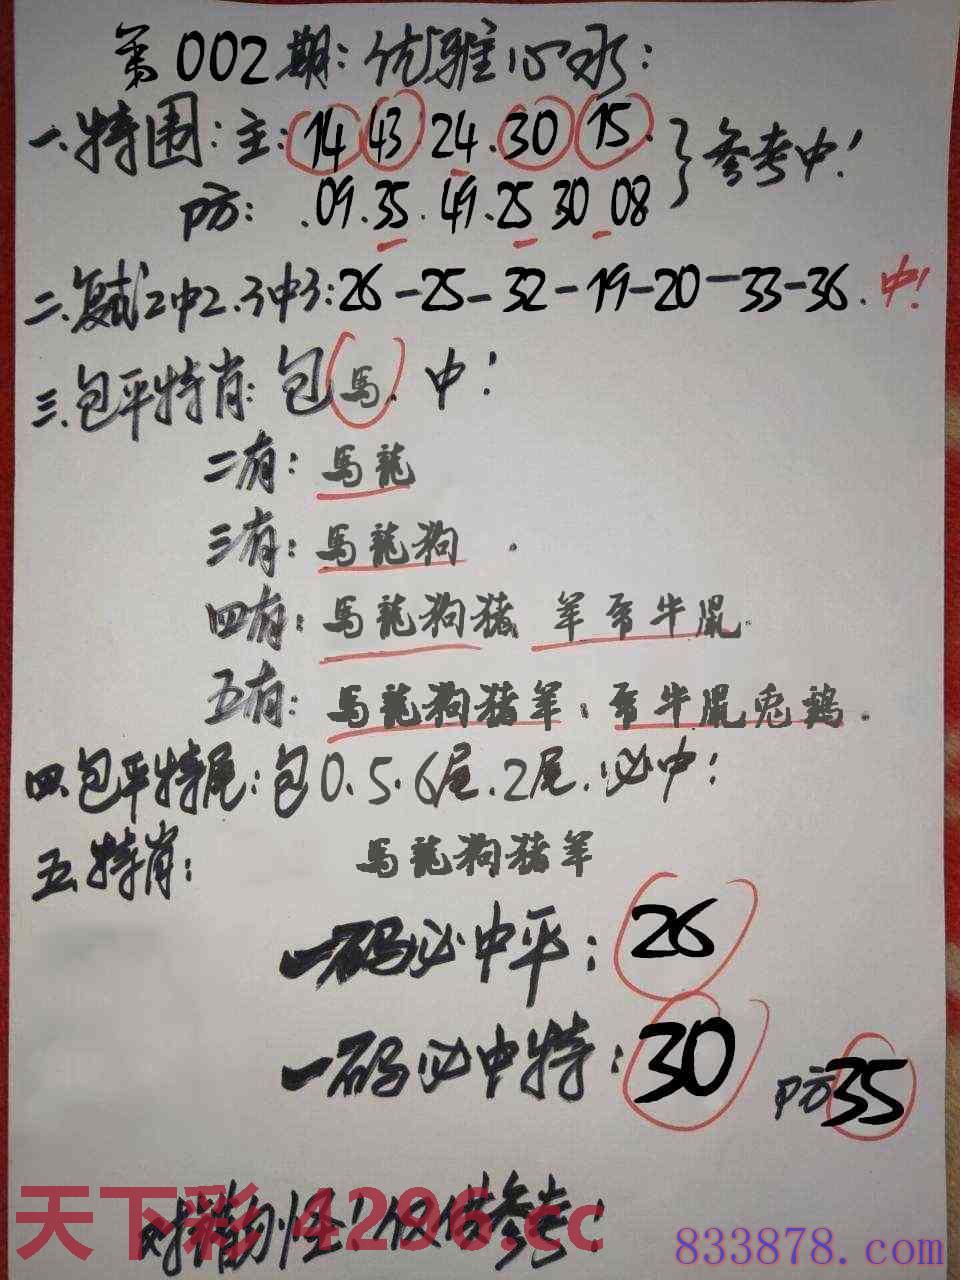 第002期：优雅心水：
一.特围：主：14 43 24 30 15.
参考中！
防：.09.35.49.25 30 08
二.复试2中2.3中3：26-25-32-19-20-33-36.中！
三.包平特肖：包馬.中！
二有：馬龍
三有：馬龍狗.
四有：馬龍狗猪 羊 牛鼠.
五有：馬龍狗猪羊： 牛鼠兔鷄.
四.包平特尾：包0.5.6尾.2尾.必中！
五.特肖：馬龍狗猪羊
一码必中平：26
一码必中特：30 防35
仅供参考！
天下彩 4296.cc
833878.com